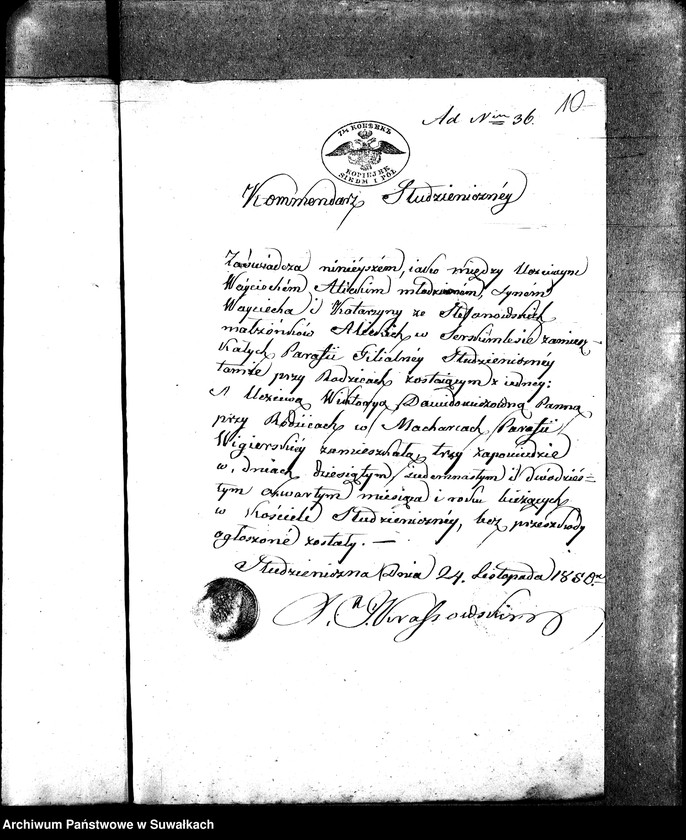 10
Ad Nrum 36.
7½ КОПѢЕКЪ
KOPIEJEK
SIEDM I PÓŁ
Kommendarz Studzieniczney
Zaświadcza ninieyszém, iako między Uczciwym
Woyciechém młodzianém, Syném
Woyciecha i Katarzyny ze Stefanowskich
małżonków w Serskimlesie zamiesz-
kałych Parafii Filialney Studzieniczney
tamże przy Rodzicach zostaiącym z iedney:
A Uczciwą Wiktoryą Dawidowiczowną Panną
przy Rodzicach w Macharcach Parafii
Wigierskiey zamieszkałą, trzy zapowiedzie
w dniach dziesiątym siedemnastym i dwódzies-
tym czwartym miesiąca i roku bieżących
w Kościele Studzieniczney, bez przeszkody
ogłoszoné zostały. —
Studzieniczna Dnia 24. Listopada 1850.
Krassowski
Archiwum Państwowe w Suwałkach